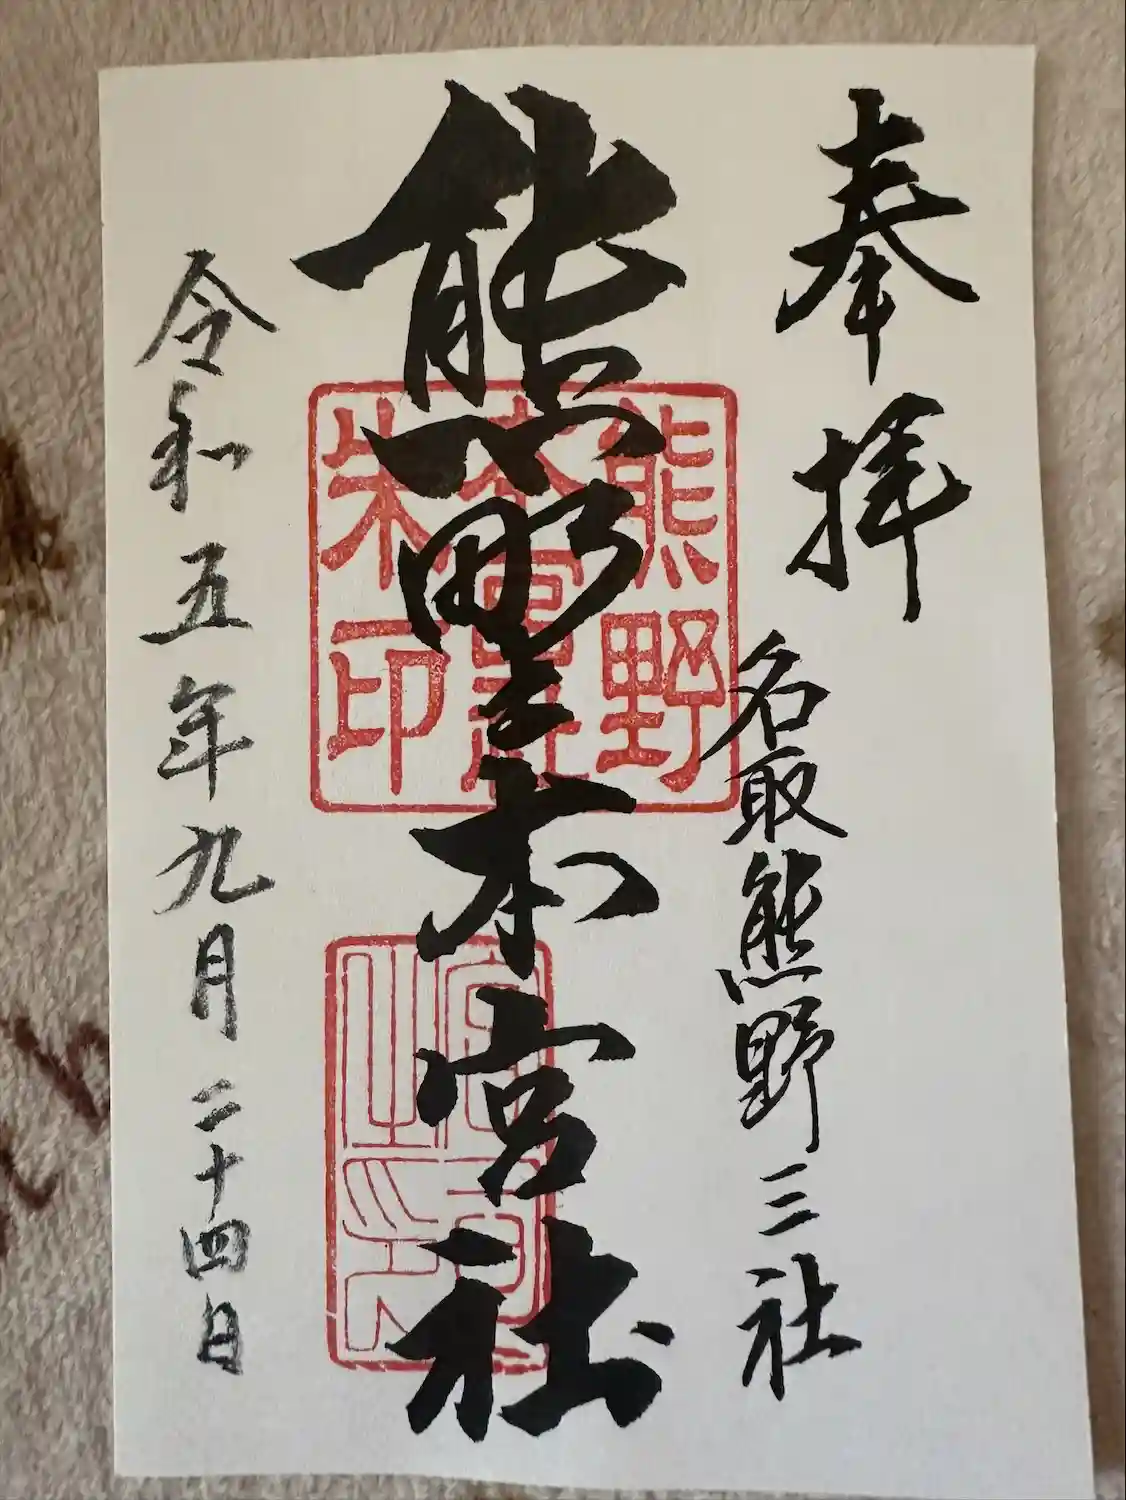 奉拝
名取熊野三社
熊野本宮社
熊野
本宮社
朱印
宮司
之印
令和五年九月二十四日